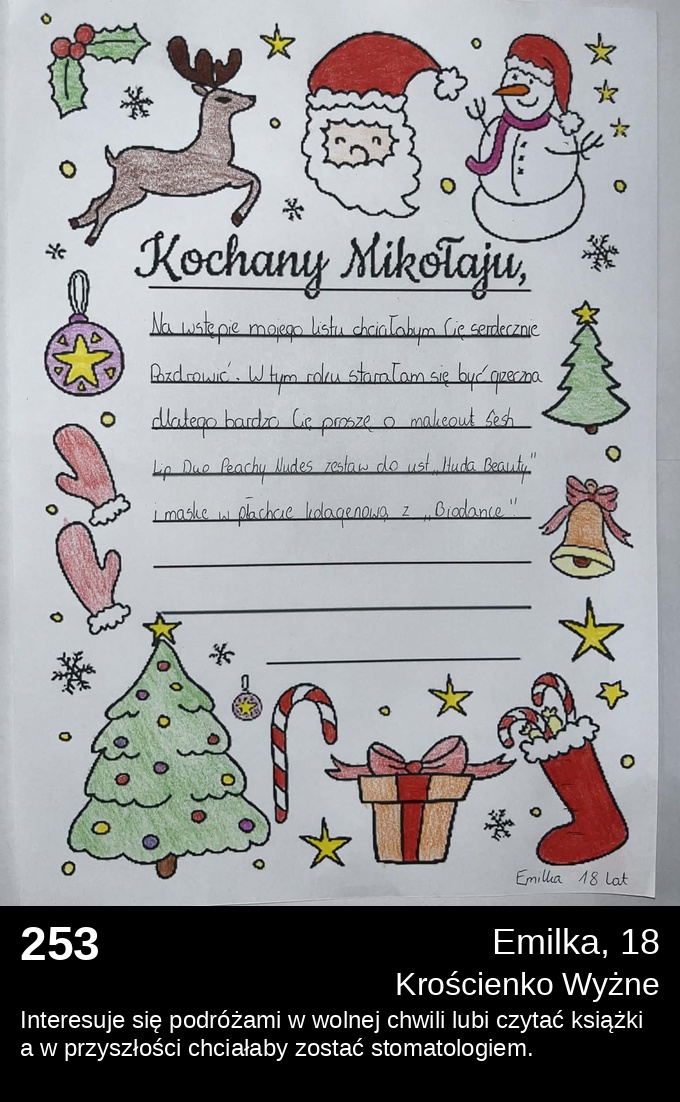 Kochany Mikołaju,
Na wstępie mojego listu chciałabym Cię serdecznie
Pozdrowić. W tym roku starałam się być grzeczna
dlatego bardzo Cię proszę o makeout Sesh
Lip Duo Peachy Nudes zestaw do ust „Huda Beauty"
i maskę w płachcie kolagenową z „Biodance"
Emilka 18 lat
253
Emilka, 18
Krościenko Wyżne
Interesuje się podróżami w wolnej chwili lubi czytać książki
a w przyszłości chciałaby zostać stomatologiem.